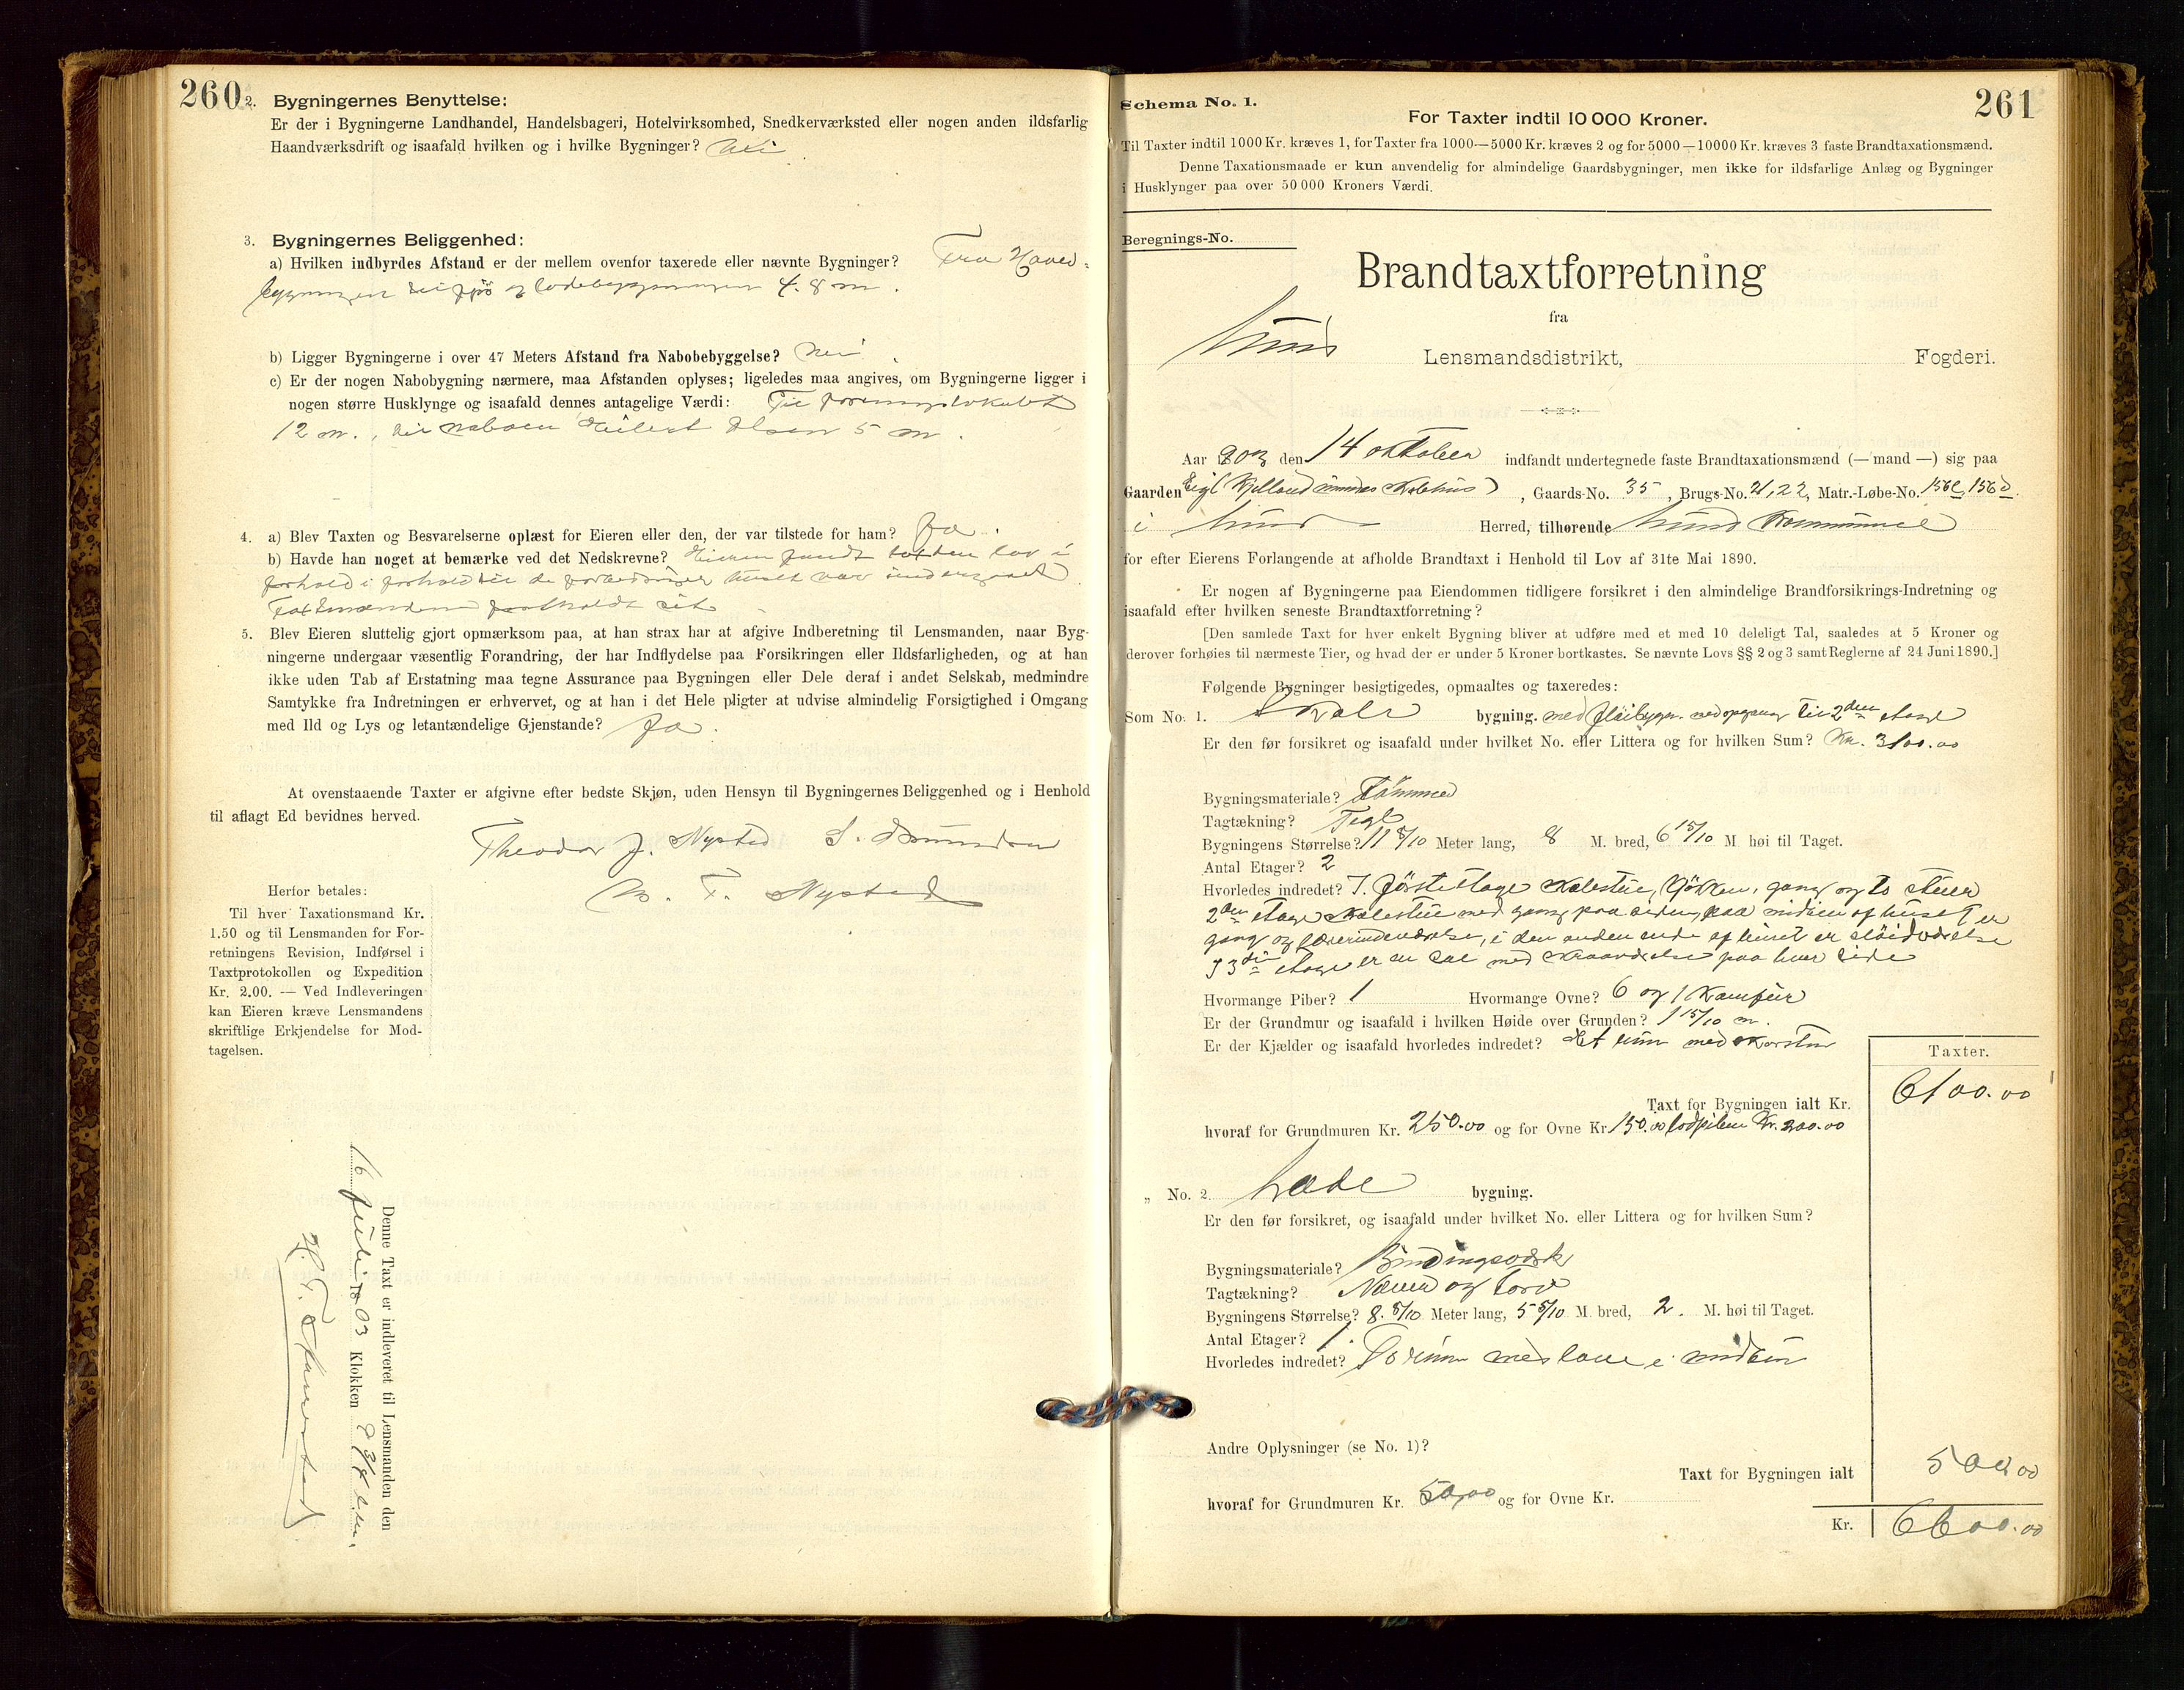 260
2. Bygningernes Benyttelse:
Er der i Bygningerne Landhandel, Handelsbageri, Hotelvirksomhed, Snedkerværksted eller nogen anden ildsfarlig
Haandværksdrift og isaafald hvilken og i hvilke Bygninger? Nei
3. Bygningernes Beliggenhed:
a) Hvilken indbyrdes Afstand er der mellem ovenfor taxerede eller nævnte Bygninger? Fra Hoved-
bygningen til fjøs og ladebygningen 4.8 m.
b) Ligger Bygningerne i over 47 Meters Afstand fra Nabobebyggelse? Nei.
c) Er der nogen Nabobygning nærmere, maa Afstanden oplyses; ligeledes maa angives, om Bygningerne ligger i
nogen større Husklynge og isaafald dennes antagelige Værdi: Til foreningslokalet
12 m., til naboen Eilert Olsen 5 m.
4. a) Blev Taxten og Besvarelserne oplæst for Eieren eller den, der var tilstede for ham? Ja.
b) Havde han noget at bemærke ved det Nedskrevne? Eieren fandt taxten lav i
forhold i forhold til de forbedringer huset var undergaaet
Taxtmændene fastholdt sit
5. Blev Eieren sluttelig gjort opmærksom paa, at han strax har at afgive Indberetning til Lensmanden, naar Byg-
ningerne undergaar væsentlig Forandring, der har Indflydelse paa Forsikringen eller Ildsfarligheden, og at han
ikke uden Tab af Erstatning maa tegne Assurance paa Bygningen eller Dele deraf i andet Selskab, medmindre
Samtykke fra Indretningen er erhvervet, og at han i det Hele pligter at udvise almindelig Forsigtighed i Omgang
med Ild og Lys og letantændelige Gjenstande? Ja.
At ovenstaaende Taxter er afgivne efter bedste Skjøn, uden Hensyn til Bygningernes Beliggenhed og i Henhold
til aflagt Ed bevidnes herved.
Theodor J. Nysted S.
T. Nysted
Herfor betales:
Til hver Taxationsmand Kr.
1.50 og til Lensmanden for For-
retningens Revision, Indførsel i
Taxtprotokollen og Expedition
Kr. 2.00. — Ved Indleveringen
kan Eieren kræve Lensmandens
skriftlige Erkjendelse for Mod-
tagelsen.
Denne Taxt er indleveret til Lensmanden den
16 juli 1803 Klokken
261
Schema No. 1.
For Taxter indtil 10 000 Kroner.
Til Taxter indtil 1000 Kr. kræves 1, for Taxter fra 1000—5000 Kr. kræves 2 og for 5000—10000 Kr. kræves 3 faste Brandtaxationsmænd.
Denne Taxationsmaade er kun anvendelig for almindelige Gaardsbygninger, men ikke for ildsfarlige Anlæg og Bygninger
i Husklynger paa over 50 000 Kroners Værdi.
Beregnings-No.
Brandtaxtforretning
fra
Lund Lensmandsdistrikt, Fogderi.
Aar 1903 den 14 oktober indfandt undertegnede faste Brandtaxationsmænd (— mand —) sig paa
Gaarden Eigl , Gaards-No. 35, Brugs-No. 21,22, Matr.-Løbe-No. 156c, 156d.
i Lund Herred, tilhørende Lund Kommune
for efter Eierens Forlangende at afholde Brandtaxt i Henhold til Lov af 31te Mai 1890.
Er nogen af Bygningerne paa Eiendommen tidligere forsikret i den almindelige Brandforsikrings-Indretning og
isaafald efter hvilken seneste Brandtaxtforretning?
[Den samlede Taxt for hver enkelt Bygning bliver at udføre med et med 10 deleligt Tal, saaledes at 5 Kroner og
derover forhøies til nærmeste Tier, og hvad der er under 5 Kroner bortkastes. Se nævnte Lovs §§ 2 og 3 samt Reglerne af 24 Juni 1890.]
Følgende Bygninger besigtigedes, opmaaltes og taxeredes:
Som No. 1. Skole bygning. med fløibygn. med opgang til 2den etage
Er den før forsikret og isaafald under hvilket No. eller Littera og for hvilken Sum? Kr. 3100.00
Bygningsmateriale? Tømmer
Tagtækning? Tegl
Bygningens Størrelse? 11 5/10 Meter lang, 8 M. bred, 6 15/10 M. høi til Taget.
Antal Etager? 2
Hvorledes indredet? I første etage skolestue, kjøkken, gang og to stuer
2den etage skolestue med gang paa siden, paa midten af huset er
gang og lærerindeværelse, i den anden ende af huset er sløidværelse
I 3die etage er en sal med skraaværelse paa hver side
Hvormange Piber? 1 Hvormange Ovne? 6 og 1 Komfur
Er der Grundmur og isaafald i hvilken Høide over Grunden? 1 15/10 m.
Er der Kjælder og isaafald hvorledes indredet? Et rum med skorsten
Taxter.
Taxt for Bygningen ialt Kr. 6100.00
hvoraf for Grundmuren Kr. 250.00 og for Ovne Kr. 150.00 Kr. 200.00
„ No. 2. Lade bygning.
Er den før forsikret, og isaafald under hvilket No. eller Littera og for hvilken Sum?
Bygningsmateriale? Bindingsværk
Tagtækning? Næver og torv
Bygningens Størrelse? 8. 5/10 Meter lang, 5 5/10 M. bred, 2. M. høi til Taget.
Antal Etager? 1.
Hvorledes indredet? To rum med lave i midten
Andre Oplysninger (se No. 1)?
Taxt for Bygningen ialt 500.00
hvoraf for Grundmuren Kr. 50,00 og for Ovne Kr.
Kr. 6600.00